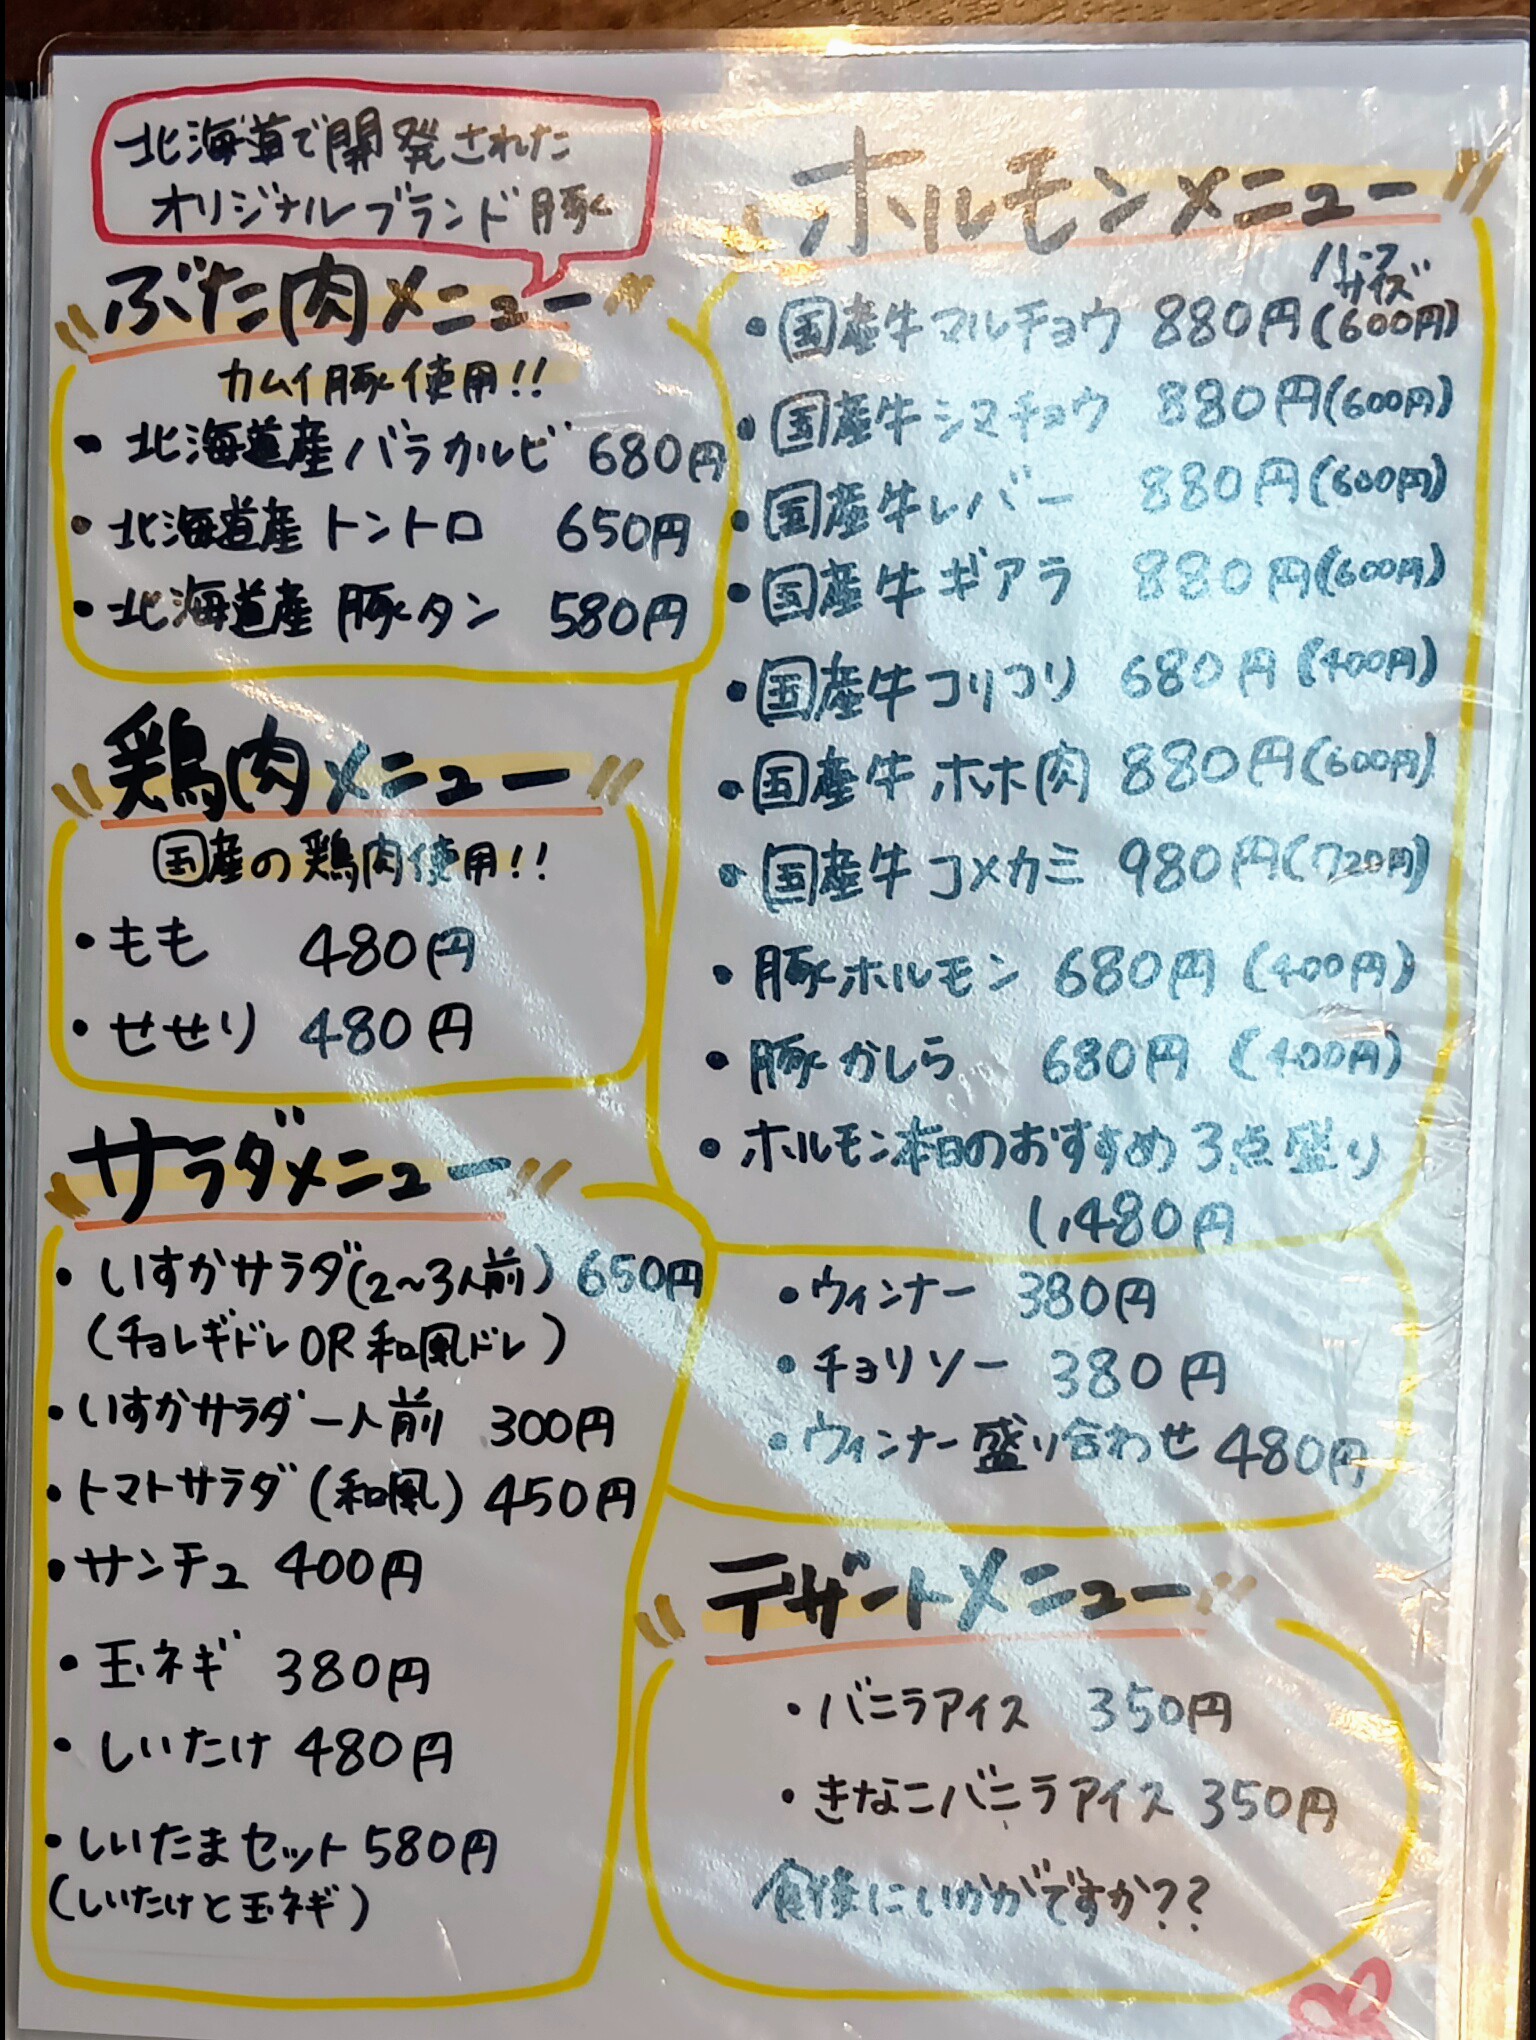 北海道で開発された
オリジナルブランド豚
ぶた肉メニュー
カムイ豚使用!!
・北海道産バラカルビ 680円
・北海道産トントロ 650円
・北海道産豚タン 580円
鶏肉メニュー
国産の鶏肉使用!!
・もも 480円
・せせり 480円
サラダメニュー
・いすかサラダ(2~3人前) 650円
(チョレギドレOR和風ドレ)
・いすかサラダ一人前 300円
・トマトサラダ(和風) 450円
・サンチュ 400円
・玉ネギ 380円
・しいたけ 480円
・しいたまセット 580円
(しいたけと玉ネギ)
ホルモンメニュー
ハーフ
サイズ
・国産牛マルチョウ 880円(600円)
・国産牛シマチョウ 880円(600円)
・国産牛レバー 880円(600円)
・国産牛ギアラ 880円(600円)
・国産牛コリコリ 680円(400円)
・国産牛ホホ肉 880円(600円)
・国産牛コメカミ 980円(720円)
・豚ホルモン 680円(400円)
・豚かしら 680円(400円)
・ホルモン本日のおすすめ3点盛り
1,480円
・ウィンナー 380円
・チョリソー 380円
・ウィンナー盛り合わせ 480円
デザートメニュー
・バニラアイス 350円
・きなこバニラアイス 350円
食後にいかがですか??